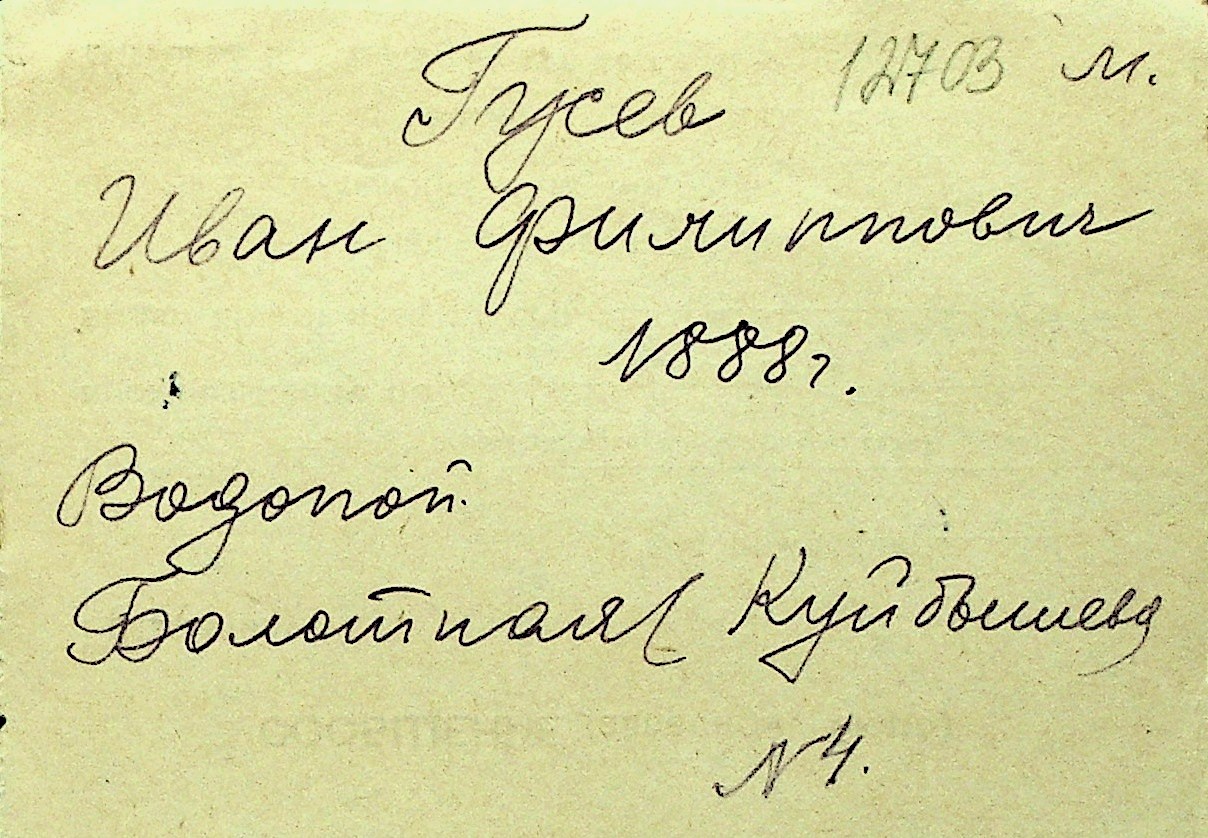 Гусев 12703 м.
Иван Филиппович
1888г.
Водопой.
Болотная ( Куйбышева
N 4.